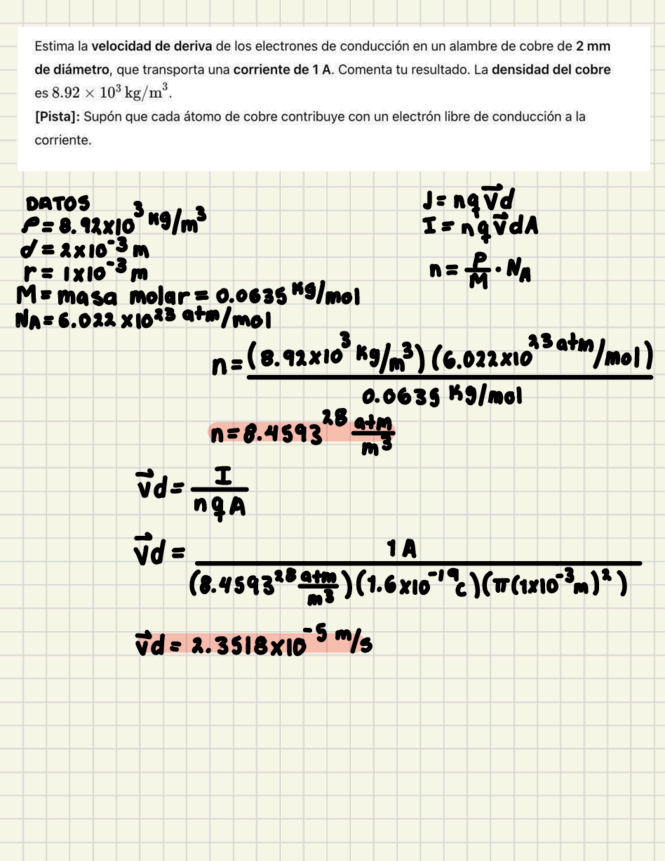 Estima la velocidad de deriva de los electrones de conducción en un alambre de cobre de 2 mm
de diámetro, que transporta una corriente de 1 A. Comenta tu resultado. La densidad del cobre
es 8.92 × 10³ kg/m³.
[Pista]: Supón que cada átomo de cobre contribuye con un electrón libre de conducción a la
corriente.
DATOS
ρ = 8.92x10³ kg/m³
d = 2x10⁻³ m
r = 1x10⁻³ m
M = masa molar = 0.0635 kg/mol
NA = 6.022 x10²³ atm/mol
J = nqv⃗d
I = nqv⃗dA
n = ρ/M · NA
n = (8.92x10³ kg/m³)(6.022x10²³ atm/mol)
0.0635 kg/mol
n = 8.4593²⁸ atm/m³
v⃗d = I/nqA
v⃗d = 1A
(8.4593²⁸ atm/m³)(1.6x10⁻¹⁹c)(π(1x10⁻³m)²)
v⃗d = 2.3518x10⁻⁵ m/s